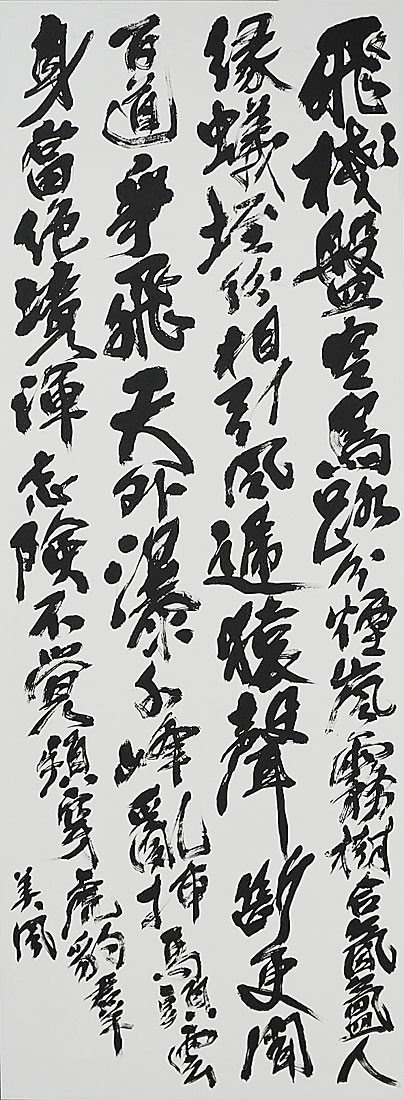 飛棧盤空鳥路分煙嵐霧樹合氤氳人
縁蟻垤紛相引風遞猿聲断更聞
百道爭飛天外瀑千峰亂挿馬頭雲
身當絶境渾忘險不覚頻穿虎豹羣
美風